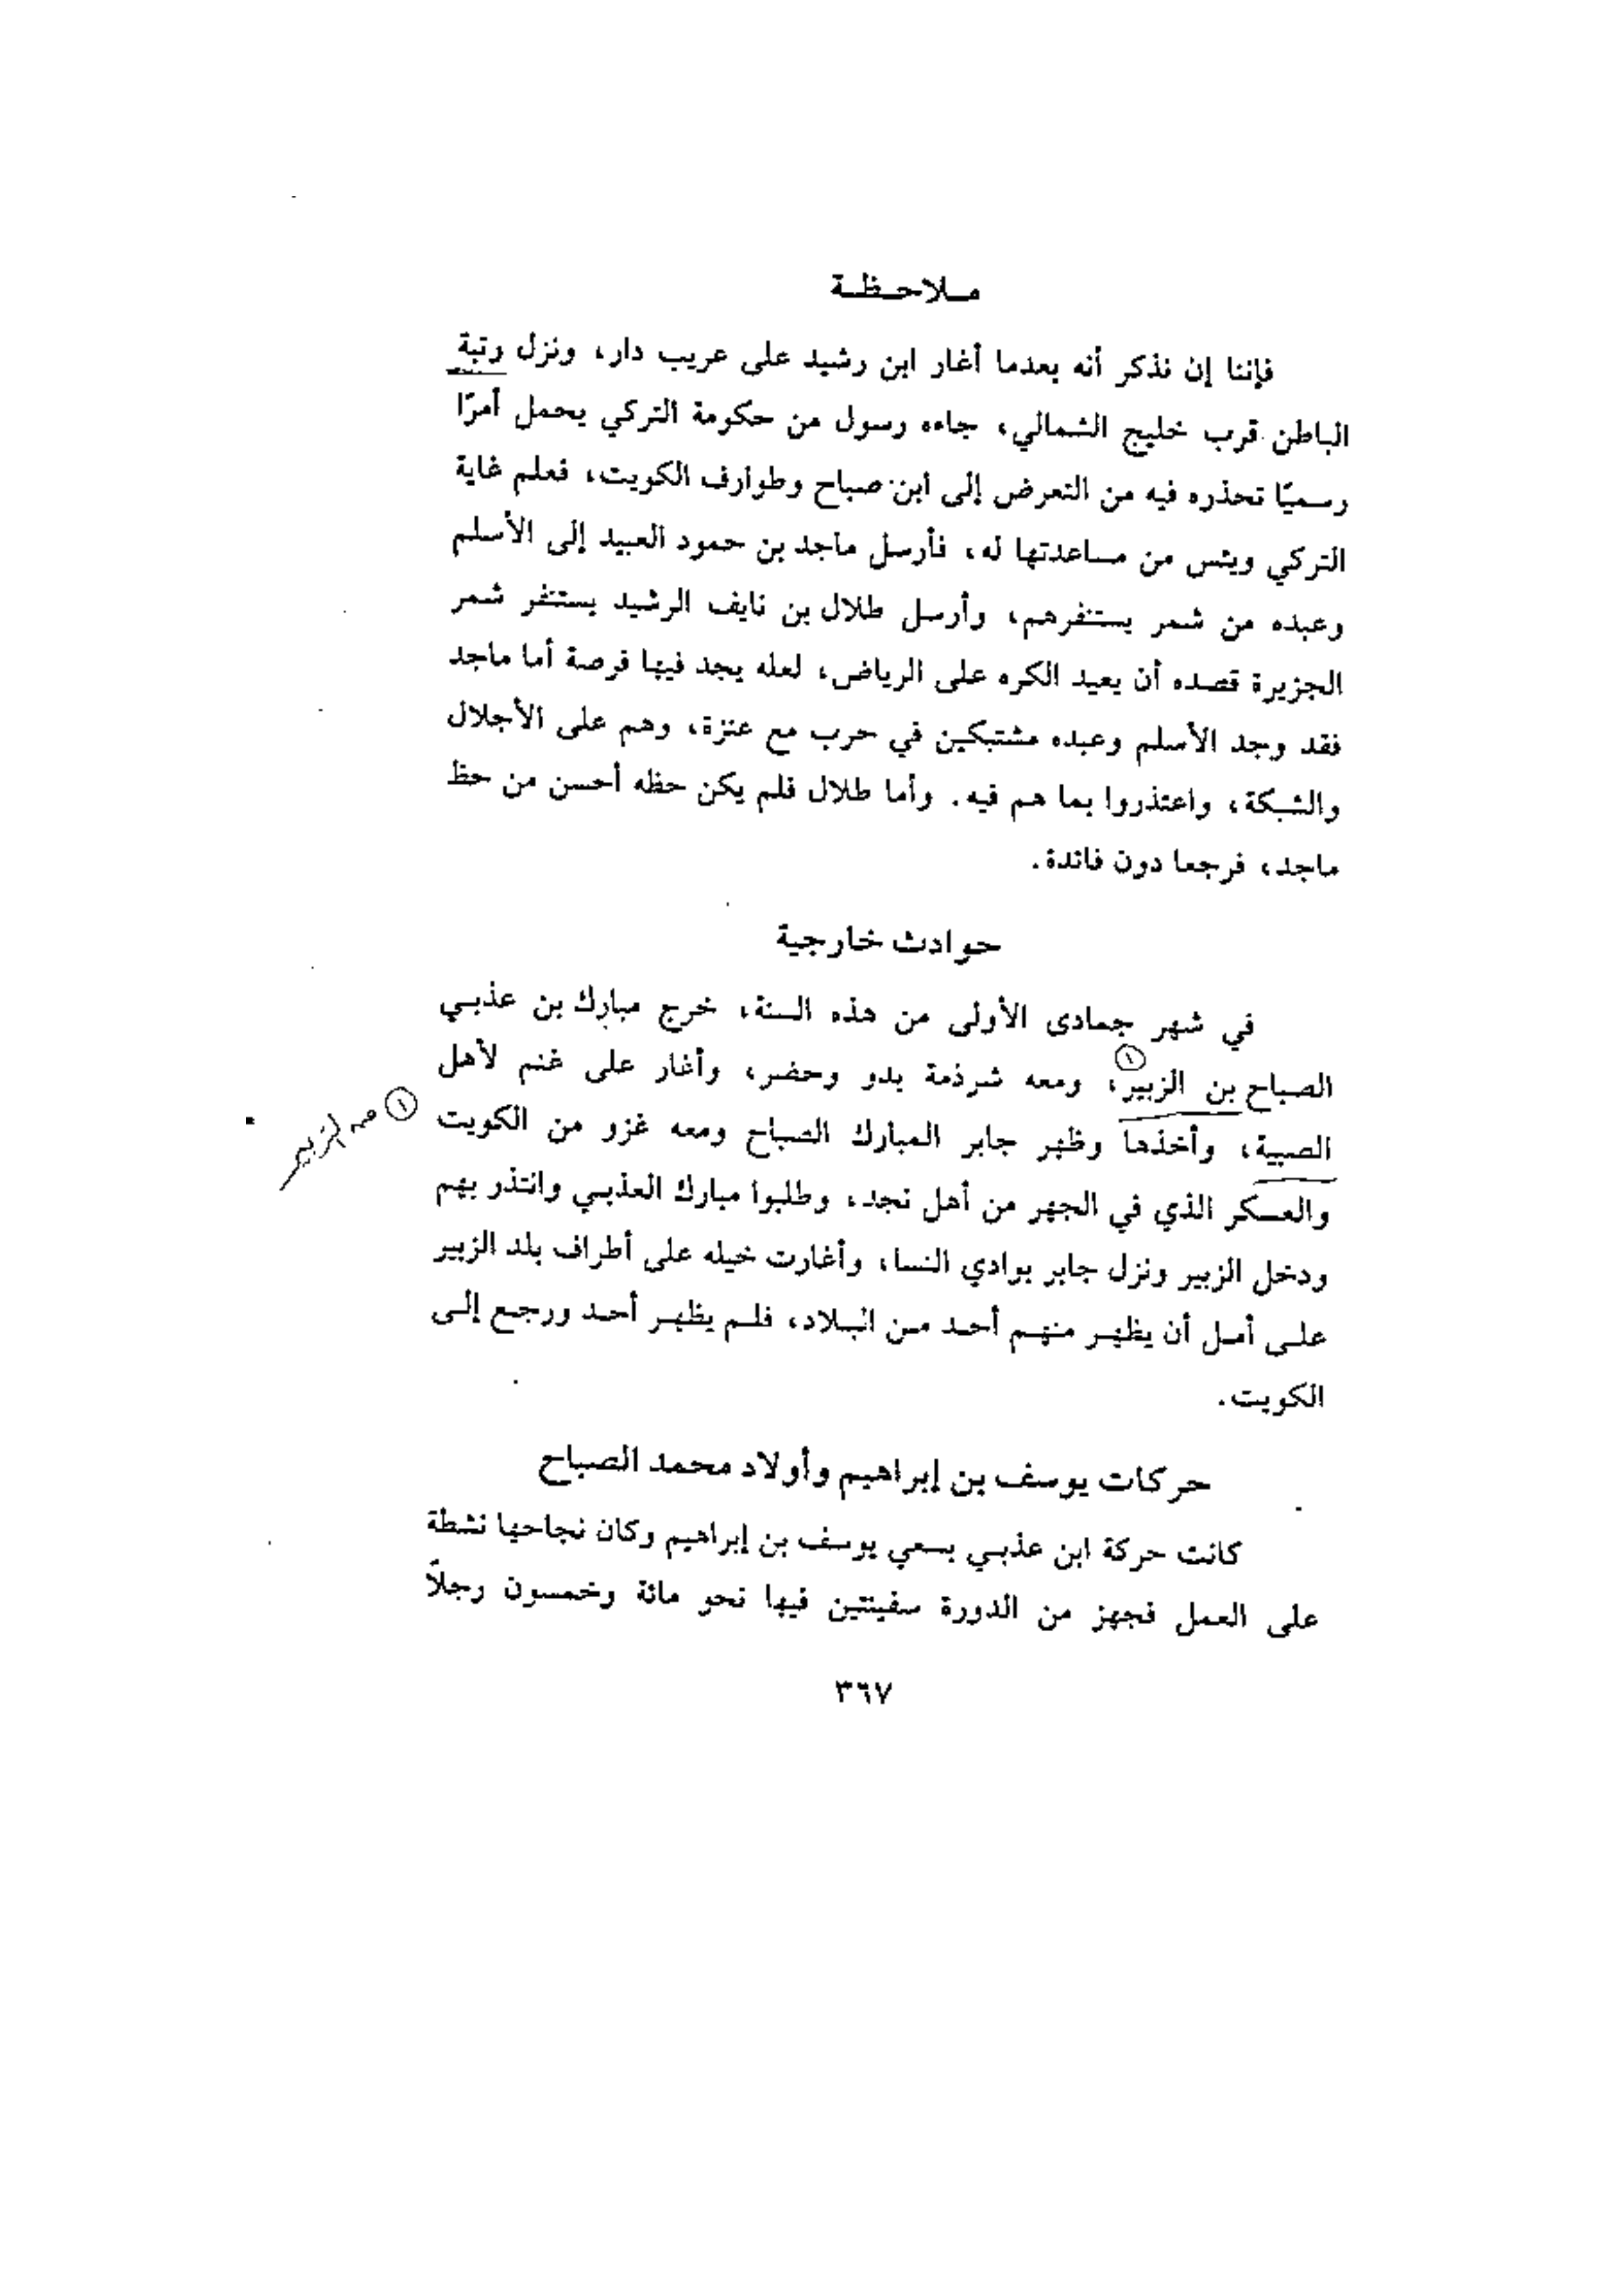 ملاحظة
فإننا إن نذكر أنه بعدما أغار ابن رشيد على عريب دار، ونزل رتبة
الباطن قرب خليج الشمالي، جاءه رسول من حكومة التركي يحمل أمرًا
رسميًا تحذره فيه من التعرض إلى ابن صباح وطوارف الكويت، فعلم غاية
التركي ويئس من مساعدتها له، فأرسل ماجد بن حمود العبيد إلى الأسلم
وعبده من شمر يستنفرهم، وأرسل طلال بن نايف الرشيد يستنفر شمر
الجزيرة قصده أن يعيد الكره على الرياض، لعله يجد فيها فرصة أما ماجد
فقد وجد الأسلم وعبده مشتبكين في حرب مع عنزة، وهم على الأجلال
والشبكة، واعتذروا بما هم فيه. وأما طلال فلم يكن حظه أحسن من حظ
ماجد، فرجعا دون فائدة.
حوادث خارجية
في شهر جمادى الأولى من هذه السنة، خرج مبارك بن عذبي
الصباح بن الزبير(١)، ومعه شرذمة بدو وحضر، وأغار على غنم لأهل
الصبية، وأخذها وظهر جابر المبارك الصباح ومعه غزو من الكويت
(١) من الزبير
والعسكر الذي في الجهر من أهل نجد، وطلبوا مبارك العذبي وانتذر بهم
ودخل الزبير ونزل جابر بوادي النسا، وأغارت خيله على أطراف بلد الزبير
على أمل أن يظهر منهم أحد من البلاد، فلم يظهر أحد ورجع إلى
الكويت.
حركات يوسف بن إبراهيم وأولاد محمد الصباح
كانت حركة ابن عذبي بسعي يوسف بن إبراهيم وكان نجاحها نشطة
على العمل فجهز من الدورة سفينتين فيها نحو مائة وخمسون رجلاً
٣٦٧